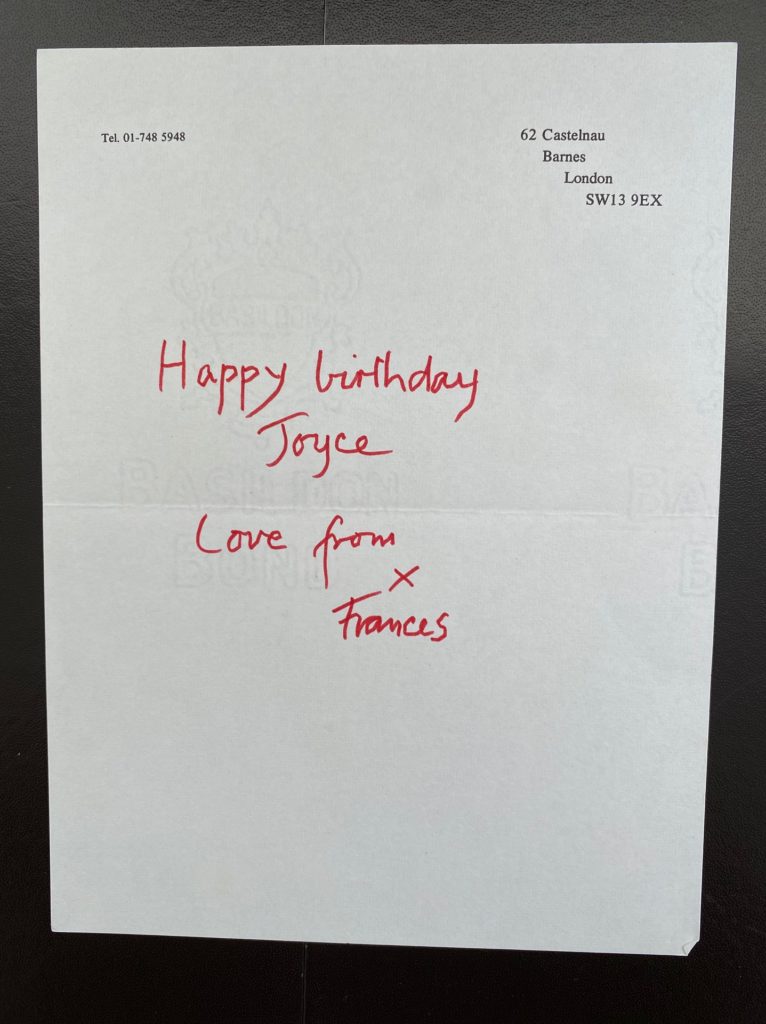 Tel. 01-748 5948
62 Castelnau
Barnes
London
SW13 9EX
Happy birthday
Joyce
Love from
x
Frances
BASILDON
BOND
BA
B